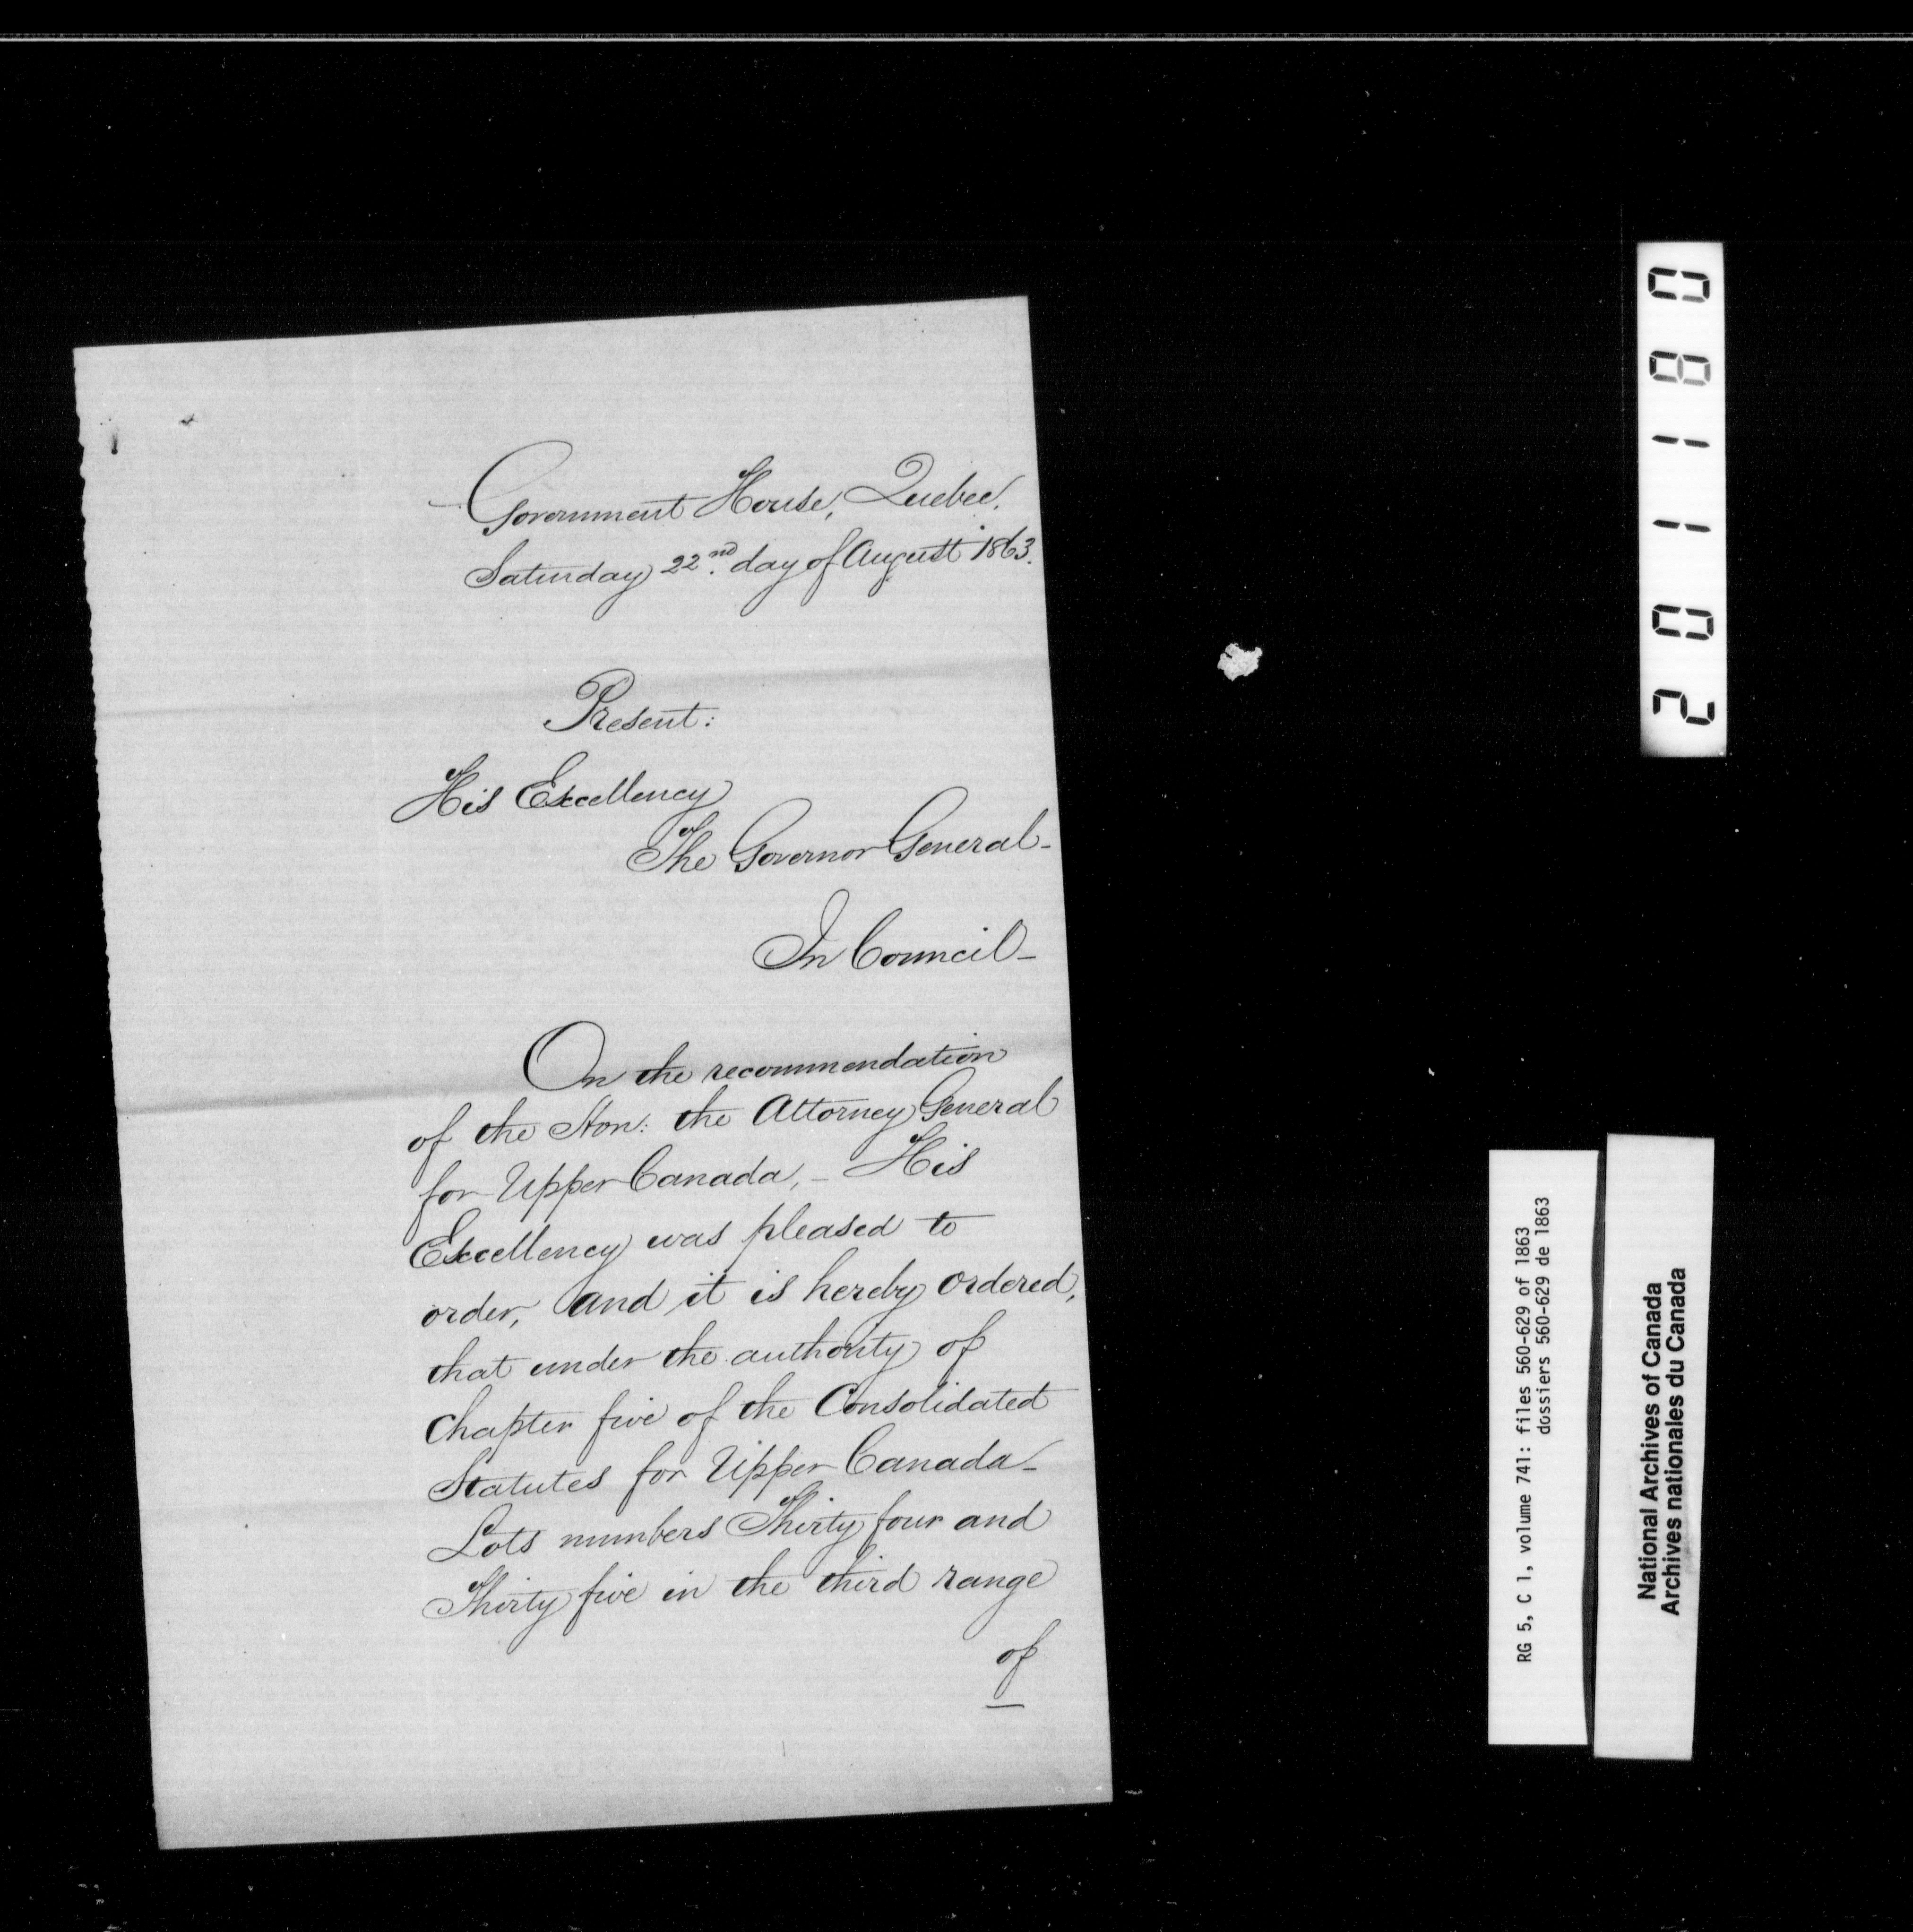 Government House, Quebec,
Saturday 22nd. day of August 1863.
Present:
His Excellency
The Governor General-
In Council-
On the recommendation
of the Hon: the Attorney General
for Upper Canada, - His
Excellency was pleased to
order, and it is hereby ordered,
that under the authority of
Chapter five of the Consolidated
Statutes for Upper Canada-
Lots numbers Thirty four and
Thirty five in the third range
of
201180
RG 5, C 1, volume 741: files 560-629 of 1863
dossiers 560-629 de 1863
National Archives of Canada
Archives nationales du Canada